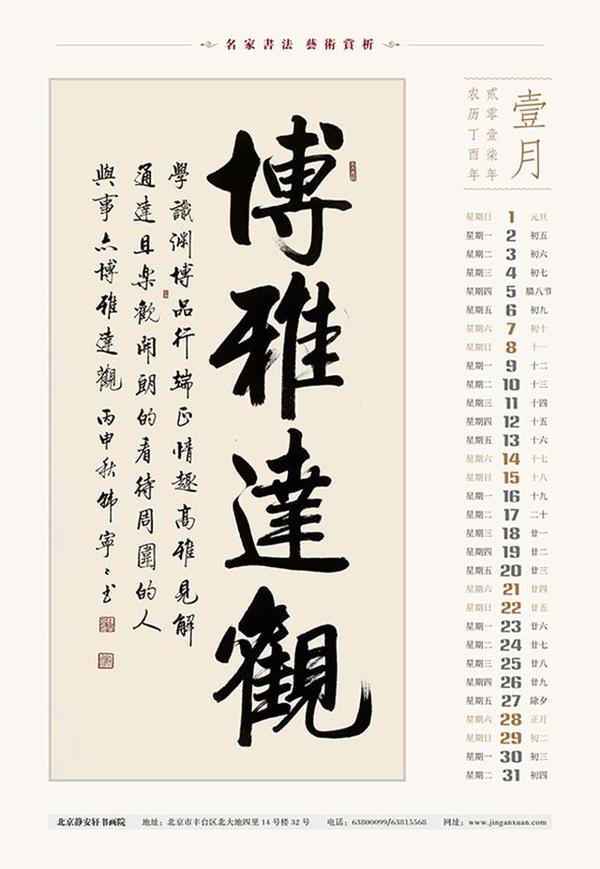 名家書法 藝術賞析
博雅達觀
學識渊博品行端正情趣高雅見解
通達且樂觀開朗的看待周圍的人
與事亦博雅達觀 丙申秋韓寧〻書
壹月
貳零壹柒年
农历丁酉年
星期日 1 元旦
星期一 2 初五
星期二 3 初六
星期三 4 初七
星期四 5 腊八节
星期五 6 初九
星期六 7 初十
星期日 8 十一
星期一 9 十二
星期二 10 十三
星期三 11 十四
星期四 12 十五
星期五 13 十六
星期六 14 十七
星期日 15 十八
星期一 16 十九
星期二 17 二十
星期三 18 廿一
星期四 19 廿二
星期五 20 廿三
星期六 21 廿四
星期日 22 廿五
星期一 23 廿六
星期二 24 廿七
星期三 25 廿八
星期四 26 廿九
星期五 27 除夕
星期六 28 正月
星期日 29 初二
星期一 30 初三
星期二 31 初四
北京静安轩书画院 地址：北京市丰台区北大地四里 14 号楼 32 号 电话：63800099/63815568 网址：www.jinganxuan.com